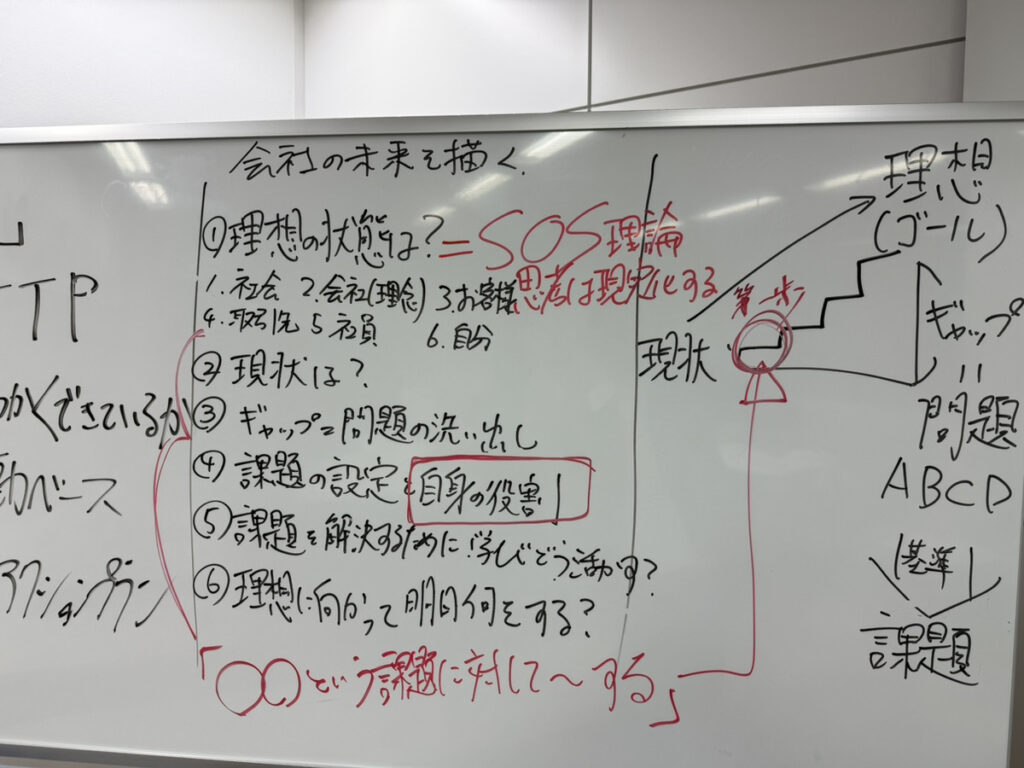 TTP
かくできているか
動ベース
アクションプラン
会社の未来を描く.
①理想の状態は?=SOS理論
1.社会 2.会社(理念) 3.お客様 思考は現実化する
4.取引先 5.社員 6.自分
②現状は?
③ギャップ=問題の洗い出し
④課題の設定と自身の役割
⑤課題を解決するために学びどう活かす?
⑥理想に向かって明日何をする?
「○○という課題に対して〜する」
理想
(ゴール)
第一歩
現状
ギャップ
=
問題
ABCD
基準
課題